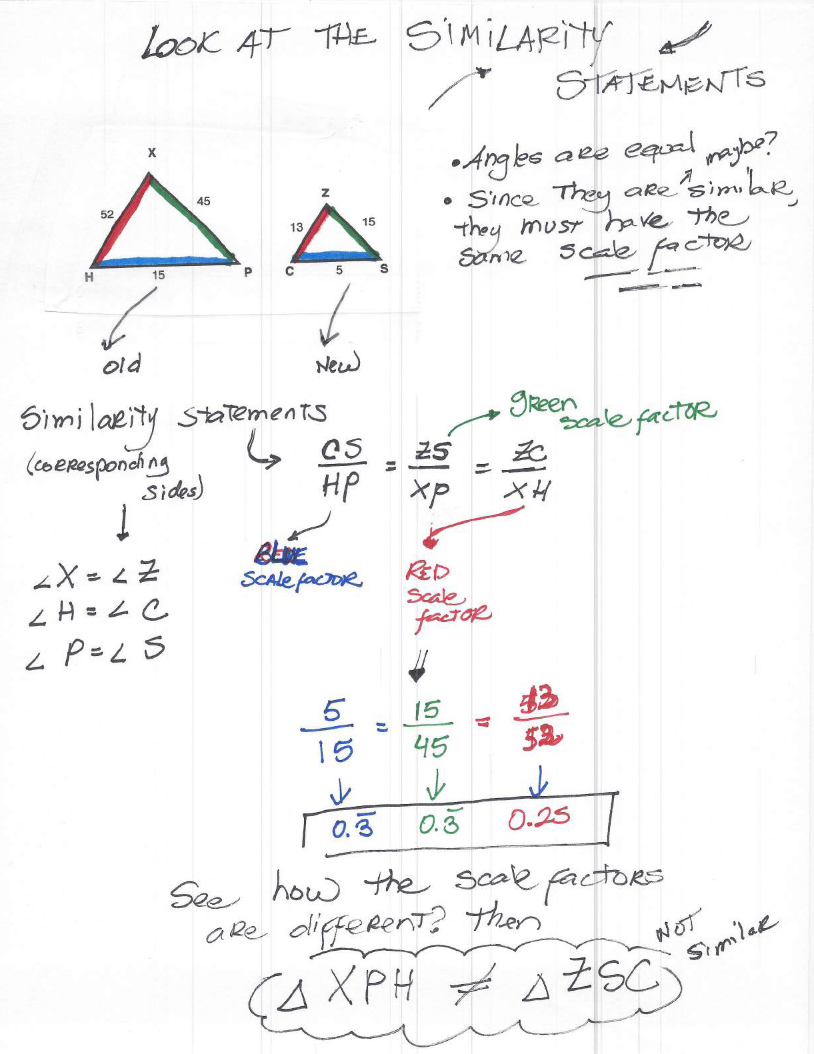 LOOK AT THE SIMILARITY
STATEMENTS
• Angles are equal maybe?
• Since They are similar,
they must have the
same scale factor
X
52
45
H
15
P
Z
13
15
C
5
S
old
New
Similarity statements
(corresponding
sides)
CS/HP = ZS/XP = ZC/XH
green
scale factor
BLUE
scale factor
RED
scale
factor
∠X = ∠Z
∠H = ∠C
∠P = ∠S
5/15 = 15/45 = 13/52
0.3̅ 0.3̅ 0.25
See how the scale factors
are different? then
NOT
similar
△XPH ≠ △ZSC